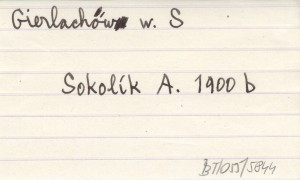 Gierlachów w. S
Sokolík A. 1900 b
BT/055/5844